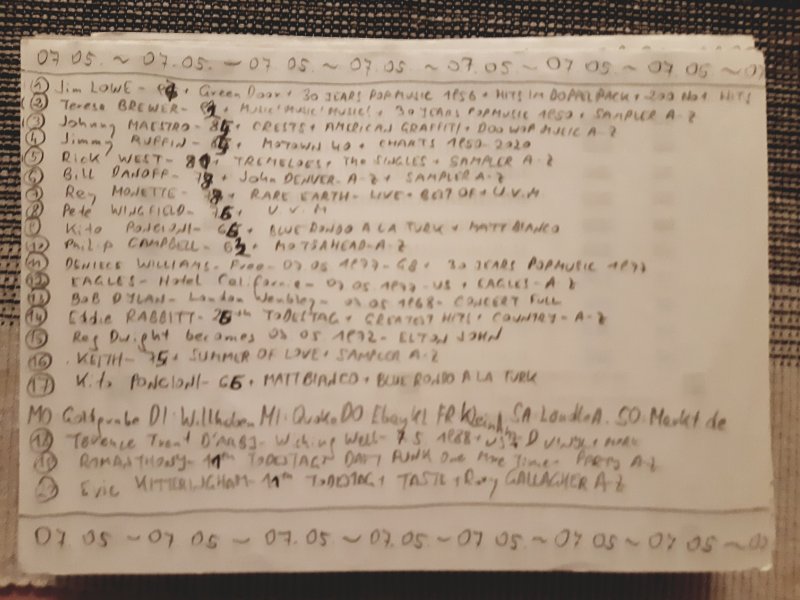 07 05. ~ 07.05. ~ 07 05. ~ 07.05. ~ 07.05. ~ 07.05 ~ 07.05 ~ 07
① Jim LOWE - + Green Door + 30 JEARS POPMUSIC 1956 + HITS IM DOPPELPACK + 200 No1 HITS
② Teresa BREWER - + MUSIC! MUSIC! MUSIC! + 30 YEARS POPMUSIC 1950 + SAMPLER A-Z
③ Johnny MAESTRO - 85 + CRESTS + AMERICAN GRAFFITI + DOO WOP MUSIC A-Z
④ Jimmy RUFFIN - + MOTOWN 40 + CHARTS 1950-2020
⑤ Rick WEST - + TREMELOES + The SINGLES + SAMPLER A-Z
⑥ Bill DANOFF - 78 + John DENVER - A-Z + SAMPLER A-Z
⑦ Ray MONETTE - 78 + RARE EARTH - LIVE + BEST OF + U.V.M
⑧ Pete WINGFIELD - 76 + U.V.M
⑨ Kito PONCIONI - 66 + BLUE RONDO A LA TURK + MATT BIANCO
⑩ Philip CAMPBELL - 63 + MOTÖRHEAD - A-Z
⑪ DENIECE WILLIAMS - Free - 07 05 1977 - GB + 30 JEARS POPMUSIC 1977
⑫ EAGLES - Hotel California - 07 05 1977 - US + EAGLES - A-Z
⑬ BOB DYLAN - London Wembley - 07 05 - CONCERT FULL
⑭ Eddie RABBITT - 26th TODESTAG + GREATEST HITS + COUNTRY - A-Z
⑮ Reg Dwight becomes 07 05 1972 - ELTON JOHN
⑯ KEITH - 75 + SUMMER OF LOVE + SAMPLER A-Z
⑰ Kito PONCIONI - 66 + MATT BIANCO + BLUE RONDO A LA TURK
MO Goldgrube DI Willhaben MI Quoka DO Ebay KL FR SA SO Markt de
⑱ Terence Trent D'ARBY - Wishing Well - 7 5 1988 + US
⑲ ROMANTHONY - 11th TODESTAG + DAFT PUNK One More Time + PARTY A-Z
⑳ Eric KITTERINGHAM - 11th TODESTAG + TASTE + Rory GALLAGHER A-Z
07 05 ~ 07 05 ~ 07.05 ~ 07.05. ~ 07 05 ~ 07 05 ~ 07 05 ~ 07